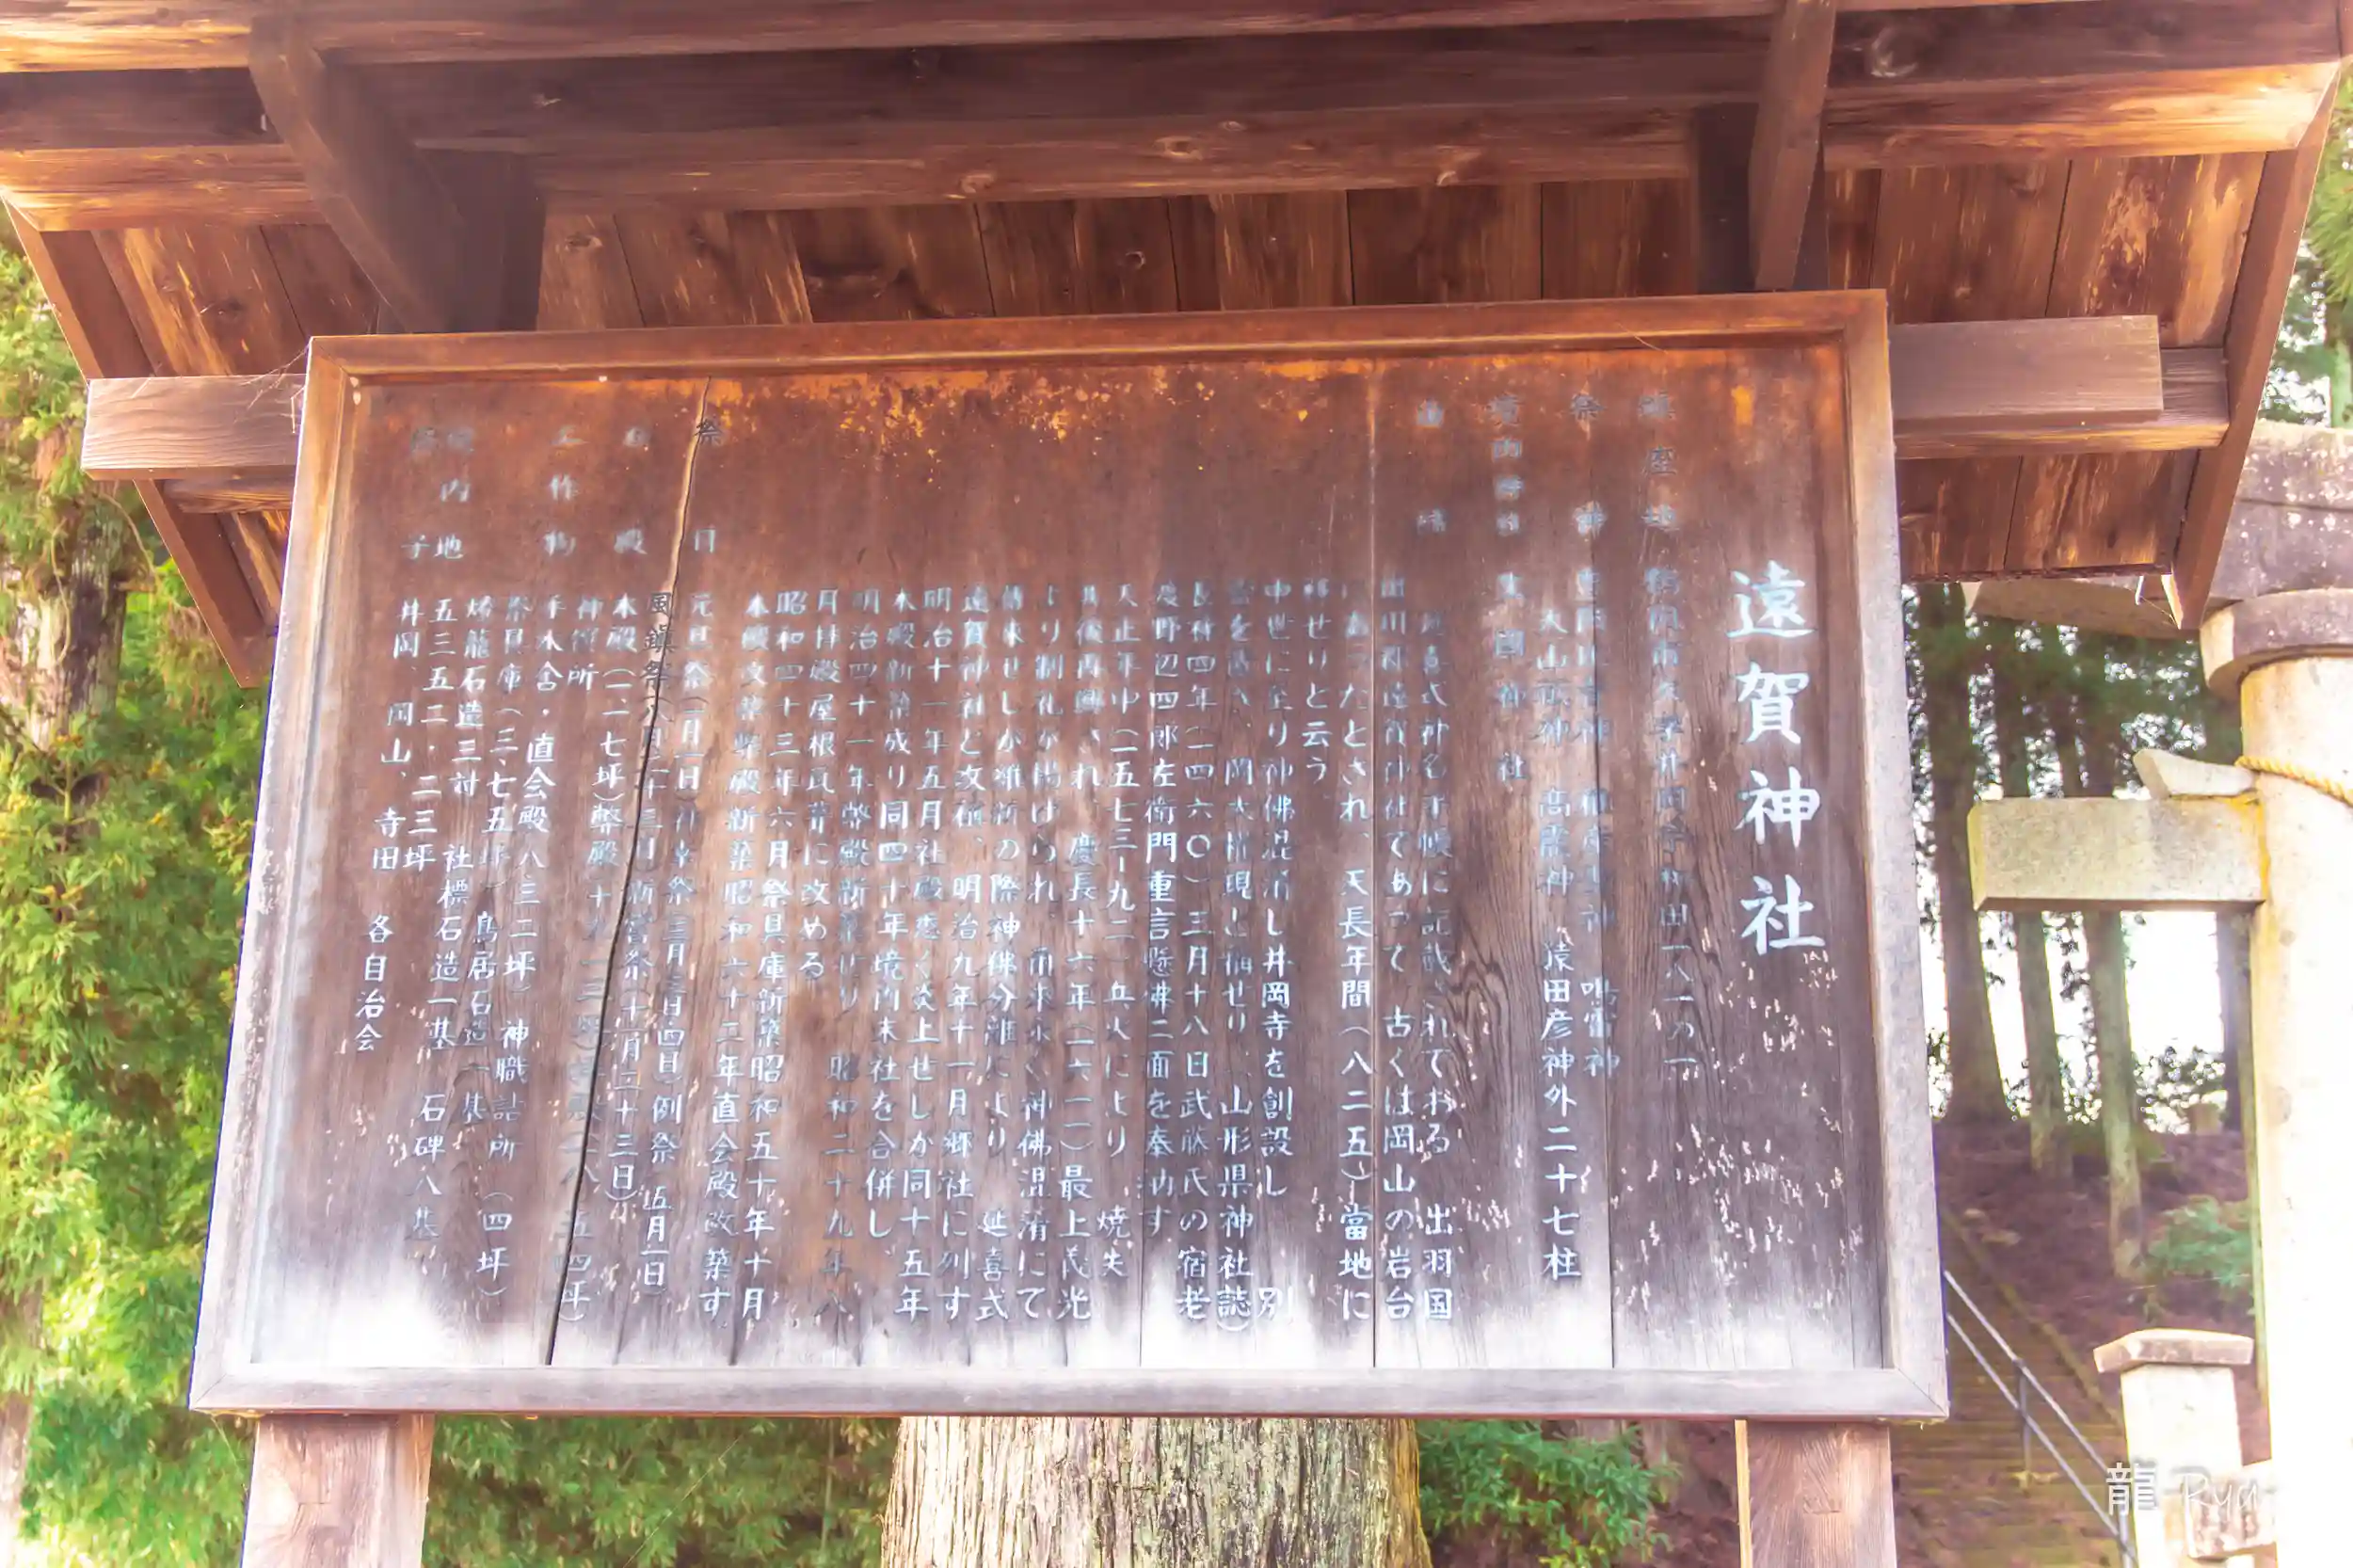 遠賀神社
鎮座地 鶴岡市大字井岡字和田一八一ノ一
祭神 豊岡比売神 稚産霊神 鳴雷神
大山祇神 高龗神 猿田彦神外二十七柱
境内 神社
延喜式神名手帳に記載されておる 出羽国
田川郡遠賀神社であって 古くは岡山の岩台
にあったとされ、天長年間(八二五)當地に
移せりと云う
中世に至り神佛混淆し井岡寺を創設し 別
當を置き、岡大権現と稱せり、山形県神社誌)
長禄四年(一四六〇)三月十八日武藤氏の宿老
渡野辺四郎左衛門重言懸沸二面を奉納す
天正年中(一五七三-九二)兵火により 焼失
其後再興され、慶長十六年(一六一一)最上義光
より制札が掲げられ、爾来永く神佛混淆にて
傳来せしが維新の際神佛分離により 延喜式
遠賀神社と改稱、明治九年十一月郷社に列す
明治十一年五月社殿悉く炎上せしが同十五年
本殿新築成り同四十年境内末社を合併し
明治四十一年幣殿新築せり 昭和二十九年八
月拝殿屋根瓦葺に改める
昭和四十三年六月祭具庫新築昭和五十年十月
本殿文 幣殿新築昭和六十二年直会殿改築す
祭日 元旦祭(一月一日)祈年祭(三月三日四日)例祭 五月一日)
風鎮祭八月二十三日)新嘗祭十一月二十三日)
社殿 本殿(一一七坪)幣殿十 二八、五四坪)
神饌所
工作物 手水舎・直会殿八三二坪)神職詰所(四坪)
祭具庫(三、七五坪)鳥居石造一基
燈籠石造三対 社標石造一基 石碑八基
境内地 五三五二・二三坪
氏子 井岡、岡山、寺田 各自治会
龍 Ryu